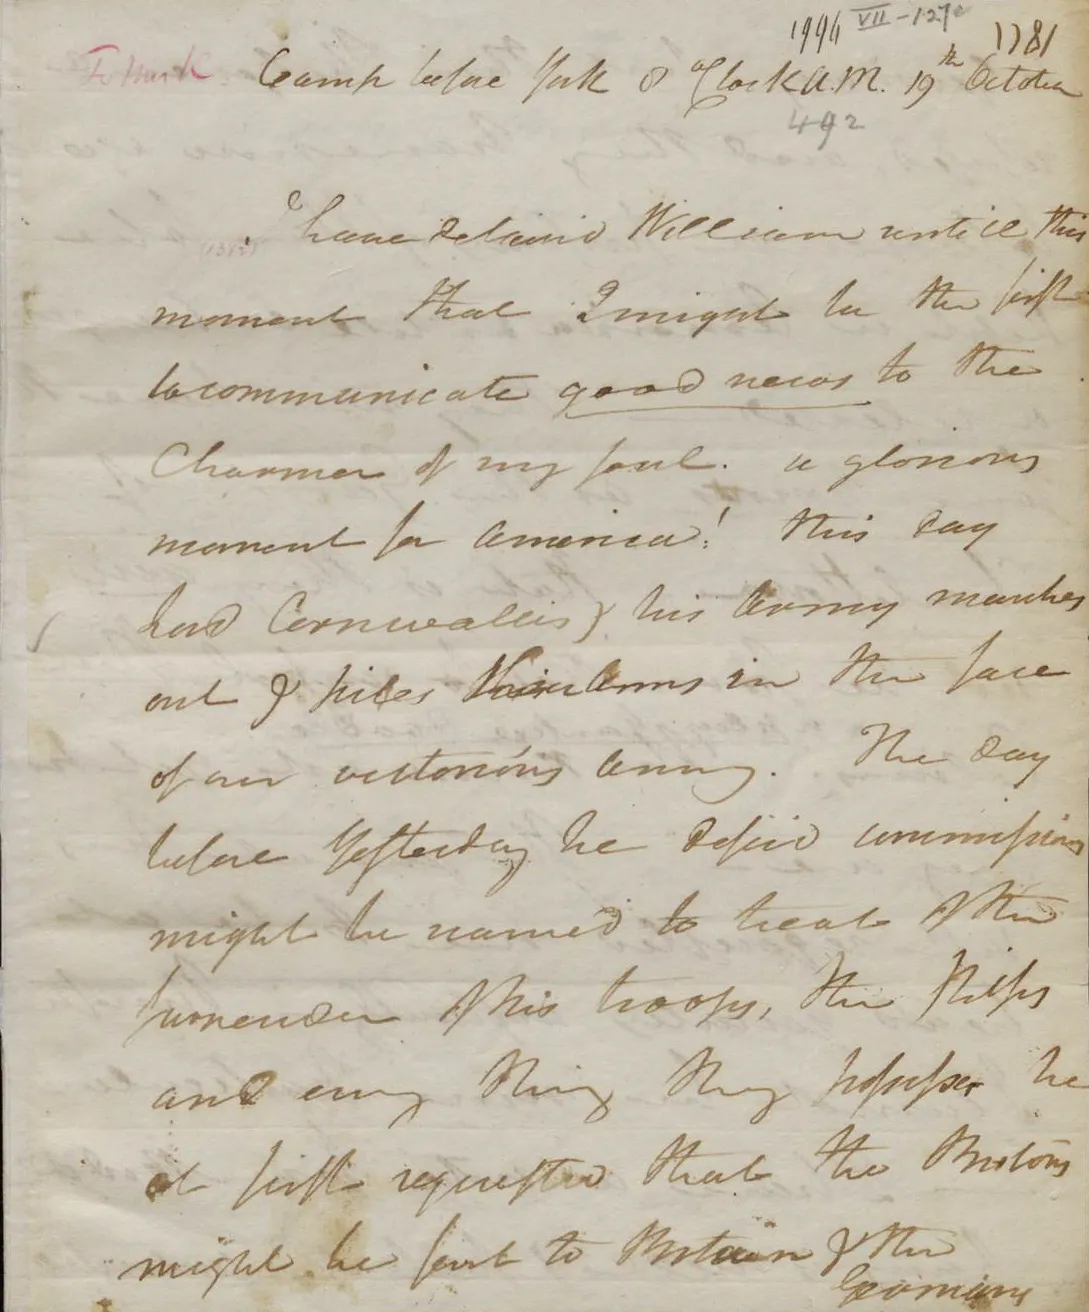 1994 VII-127c 1781
To Mrs K. Camp before York 8 oClock A.M. 19th October
492
I have detaind William untill this
moment that I might be the first
to communicate good news to the
Charmer of my soul. a glorious
moment for America! this day
Lord Cornwallis & his Army marches
out & piles their Arms in the face
of our victorious Army. The day
before Yesterday he desired commissioners
might be named to treat of the
surrender of his troops, their Ships
and every thing they possess he
at first requested that the Britons
might be sent to Britain & the
Germans